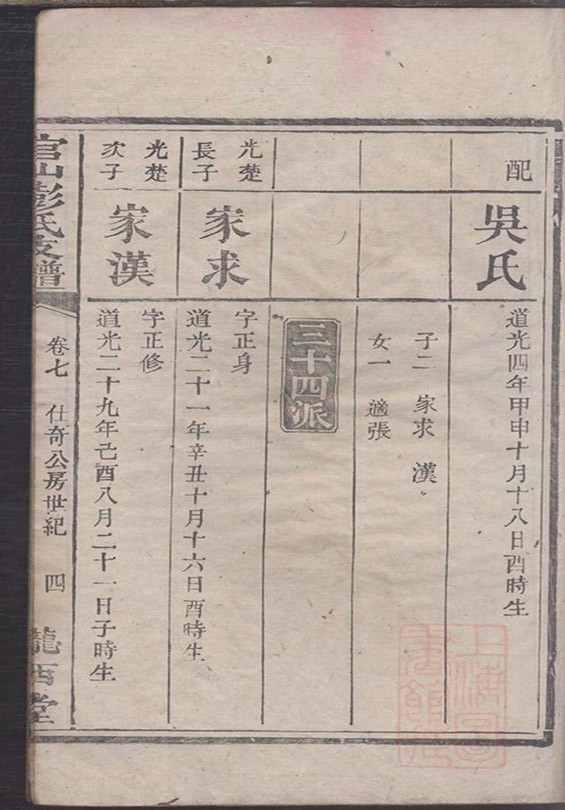 配
吳氏
道光四年甲申十月十八日酉時生
子二 家求 漢
女一 適張
三十四派
光楚
長子
家求
字正身
道光二十一年辛丑十月十六日酉時生
光楚
次子
家漢
字正修
道光二十九年己酉八月二十一日子時生
官山彭氏支譜
卷七 仕奇公房世紀 四
隴西堂